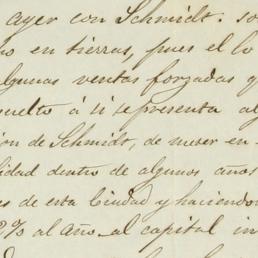 ayer con Schmidt. so
o en tierras, pues el lo
lgunas ventas forzadas q
suelto á ti representa al
ion de Schmidt, de meser en
lidad dentro de algunos años
es de esta Ciudad y haciendo
2% al año al capital in